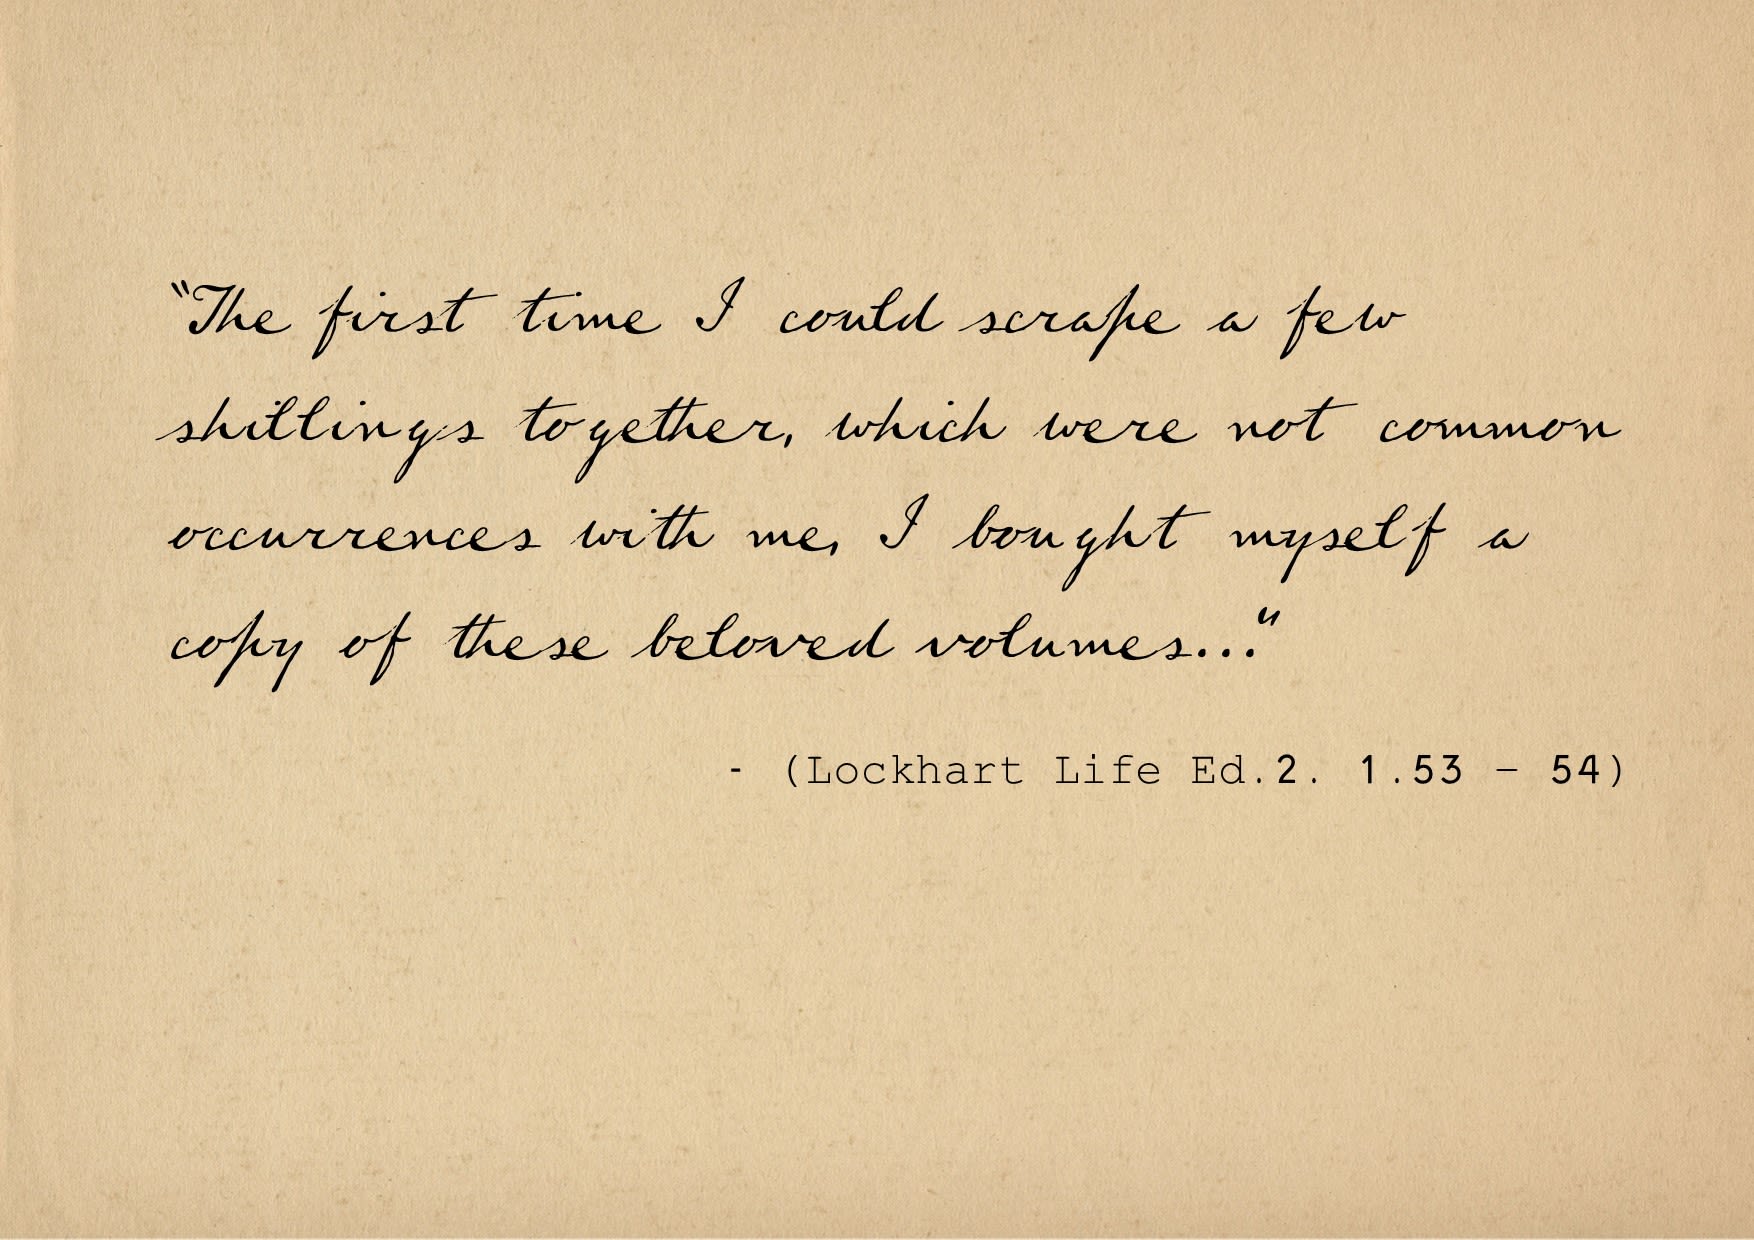 “The first time I could scrape a few
shillings together, which were not common
occurrences with me, I bought myself a
copy of these beloved volumes..."
- (Lockhart Life Ed.2. 1.53 – 54)